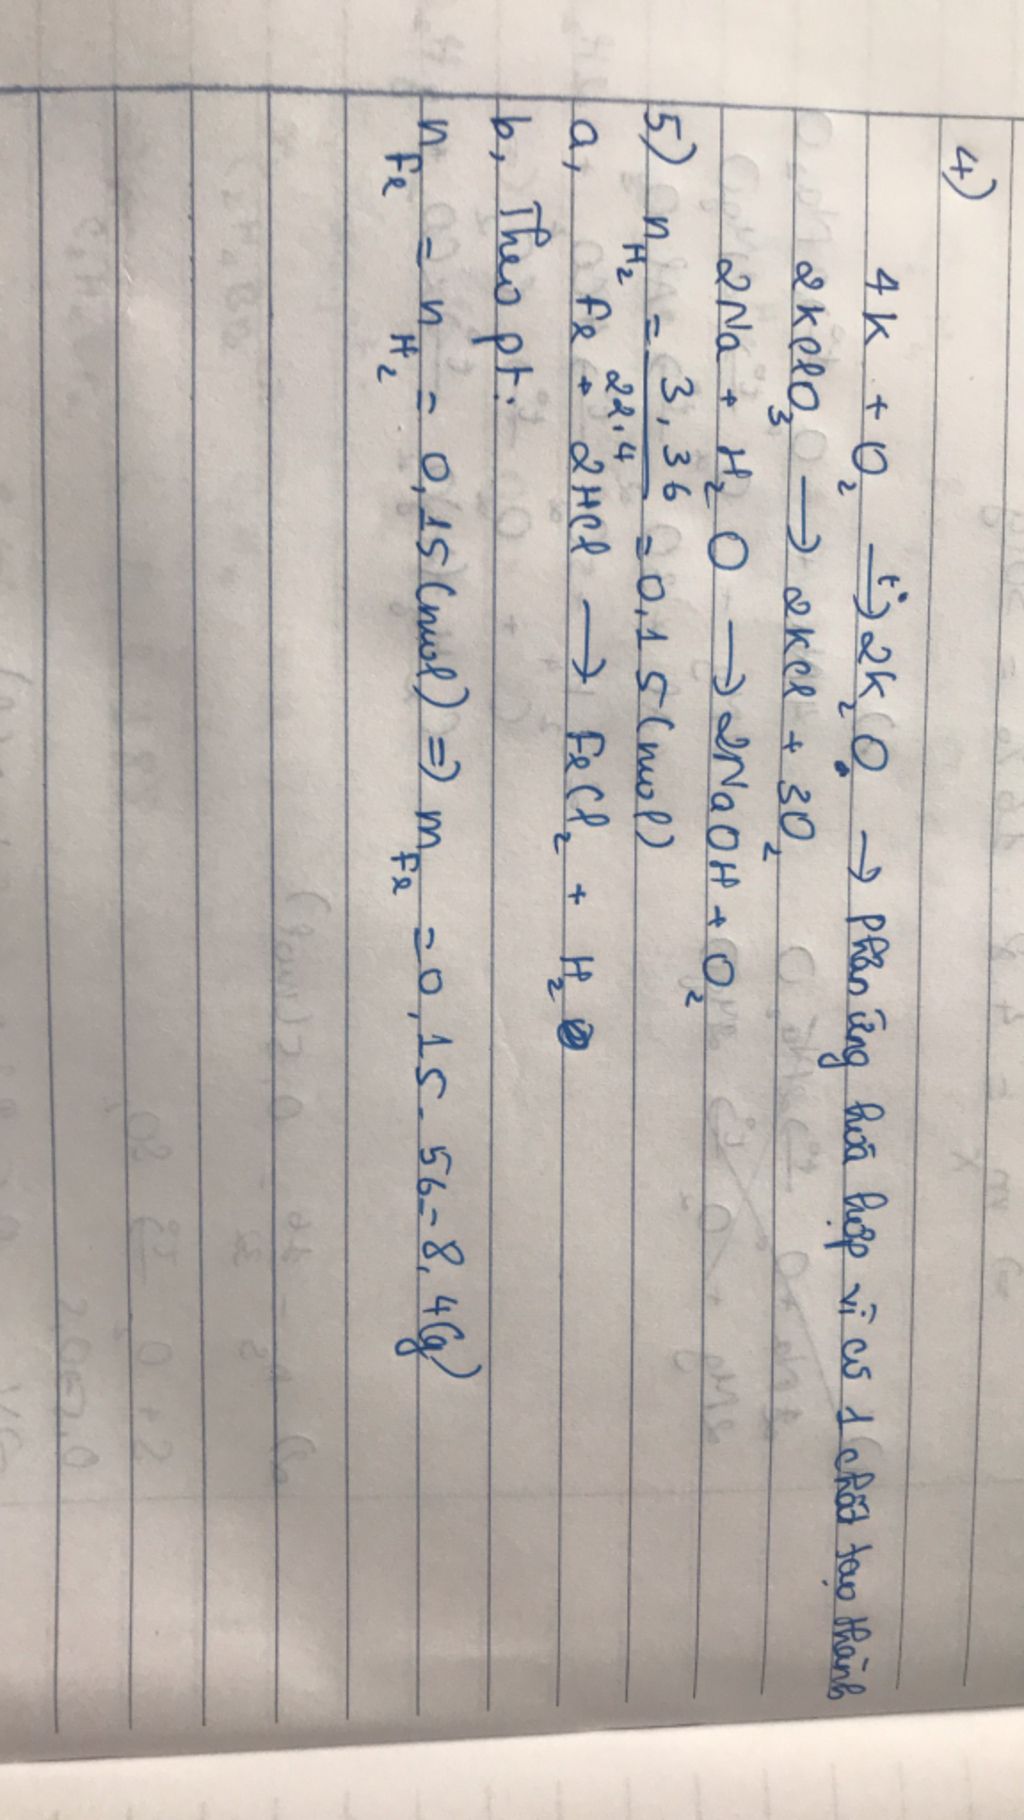 4)
4K + O₂ —t°→ 2K₂O → Phản ứng hoá hợp vì có 1 chất tạo thành
2KClO₃ → 2KCl + 3O₂
2Na + H₂O → 2NaOH + O₂
5) n_H₂ = 3,36 / 22.4 = 0,15 (mol)
a, Fe + 2HCl → FeCl₂ + H₂
b, Theo pt:
n_Fe = n_H₂ = 0,15 (mol) => m_Fe = 0,15 . 56 = 8,4(g)